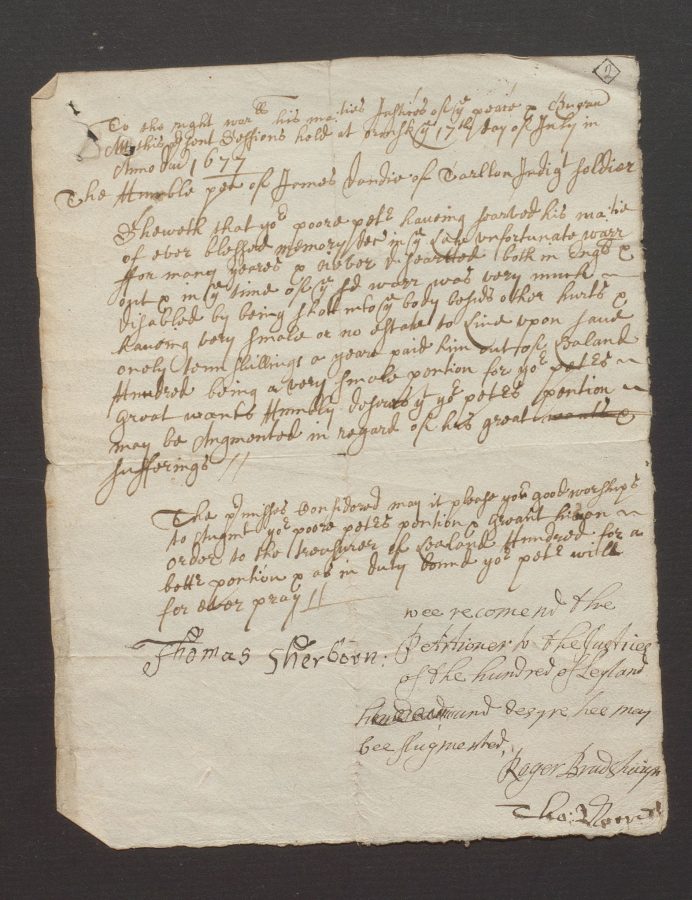 2
To the right worspp his maties Justices of ye peace & Quoru
Att this psent Sessions held at ormsk ye 17th day of July in
Anno Dni 1677
The Humble pet of James Dandie of Tarlton Indigt soldier
Sheweth that yor poore petr haveing searved his matie
of ever blessed memory in ye Late unfortunate warr
ffor many yeares & never disearted both in &
out & in ye time of ye sd warr was very much
disabled by being shott into ye body besids other hurts &
haveing very smale or no estate to Live upon save
onely tenn shillings a yeare paid him out of Lealand
Hundred being a very smale pention for yor petrs
great wants Humbly desires yt yor petrs pention
may be Augmented in regard of his great wants &
sufferings //
The pmisses considered may it please yor good worships
to Augmt yor poore petrs pention & graunt him an
order to the treasurer of Lealand Hundred for a
bettr pention & as in duty bound yor petr will
for ever pray //
wee recomend the
Thomas Sherborn:
Petitioner to the Justices
of the hundred of Leyland
and desyre hee may
bee Augmented,
Roger Bradshaigh
Tho: